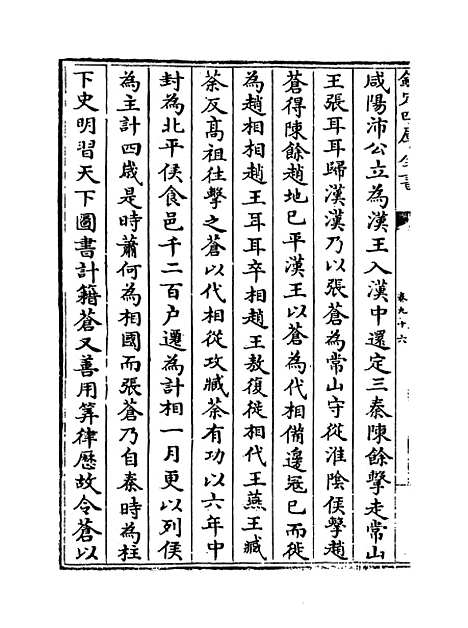 欽定四庫全書
卷九十六
咸陽沛公立為漢王入漢中還定三秦陳餘擊走常山
王張耳耳歸漢漢乃以張蒼為常山守從淮陰侯擊趙
蒼得陳餘趙地已平漢王以蒼為代相備邊冦已而徙
為趙相相趙王耳耳卒相趙王敖復徙相代王燕王臧
荼反髙祖往擊之蒼以代相從攻臧荼有功以六年中
封為北平侯食邑千二百户遷為計相一月更以列侯
為主計四歲是時蕭何為相國而張蒼乃自秦時為柱
下史明習天下圖書計籍蒼又善用筭律歴故令蒼以